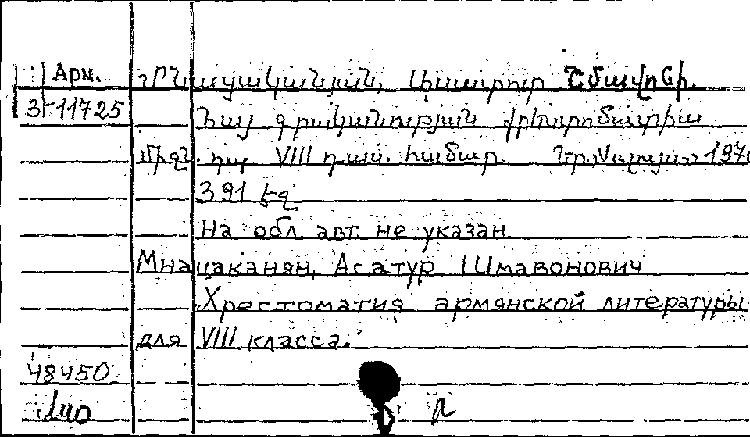 Арм.
Մնացականյան, Ասատուր Շմավոնի.
3-11725
Հայ գրականության քրեստոմատիա
միջն. դպ. VIII դաս. համար. 197
391 էջ
На обл. авт. не указан
Мнацаканян, Асатур Шмавонович
Хрестоматия армянской литературы
для VIII класса.
48450